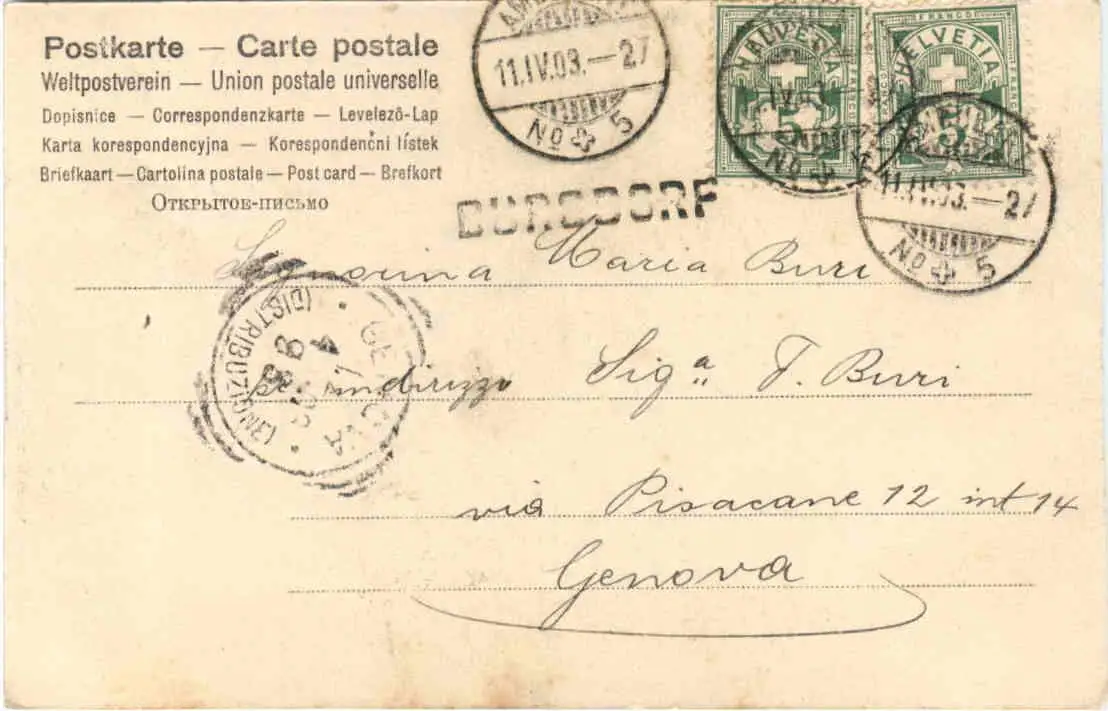 Postkarte — Carte postale
Weltpostverein — Union postale universelle
Dopisnice — Correspondenzkarte — Levelezö-Lap
Karta korespondencyjna — Korespondenční lístek
Briefkaart — Cartolina postale — Post card — Brefkort
Открытое-письмо
AMBULANT
11.IV.03.—27
No 5
FRANCO
HELVETIA
5
FRANCO
HELVETIA
5
AMBULANT
11.IV.03.—27
No 5
BURGDORF
Signorina Maria Buri
GENOVA
(DISTRIBUZIONE)
indirizzo Sigª T. Buri
via Pisacane 12 int 14
Genova